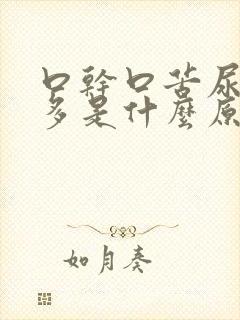 口幹口苦尿
多是什麼原
如月奏